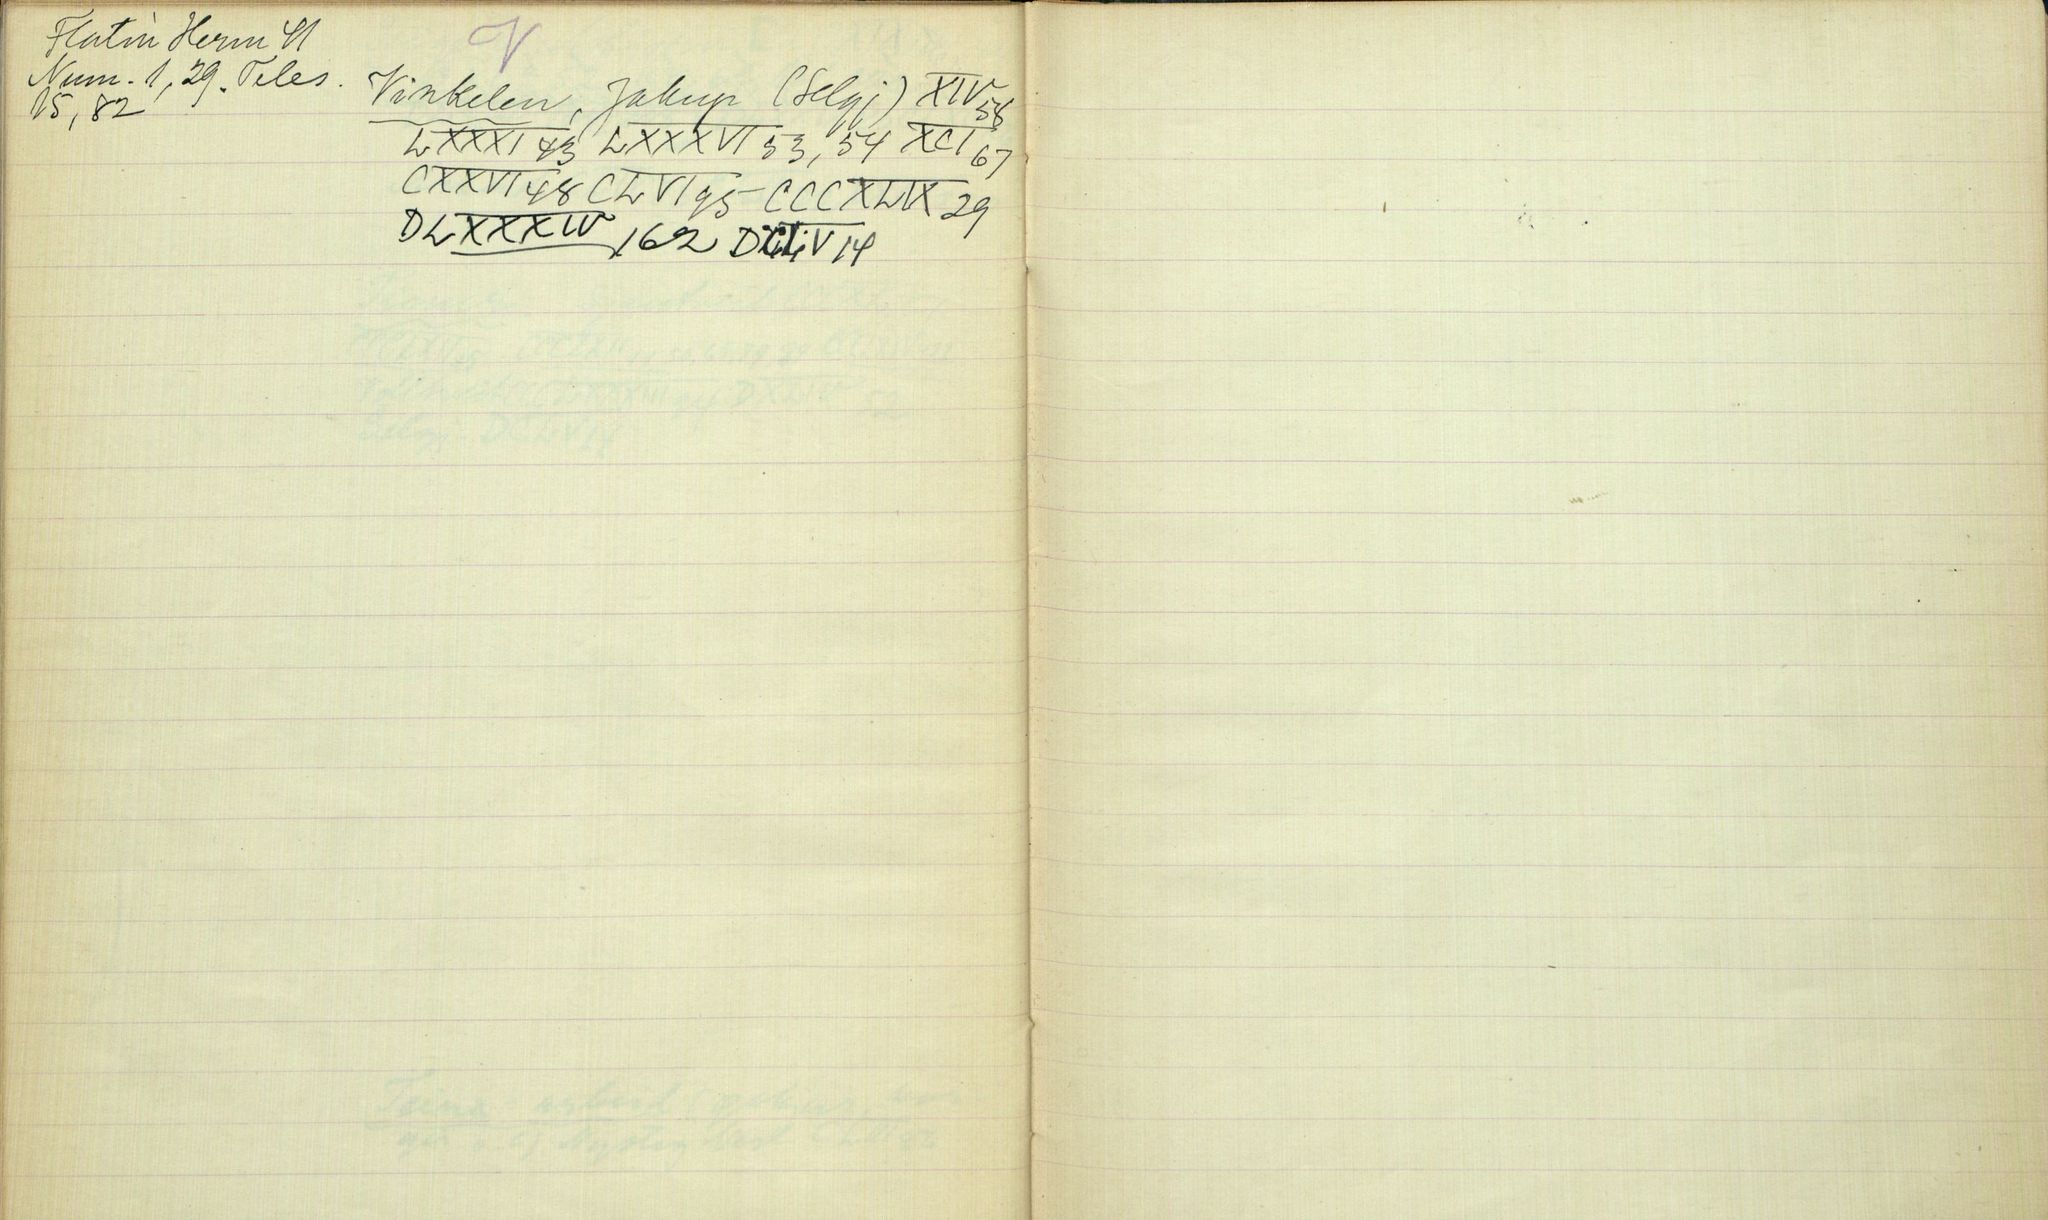 Flatin Herm H
Num. 1, 29. Teles.
15, 82
V
Vinkelen, Jakup (Selgj) XIV 58
LXXXI 43 LXXXVI 53, 54 XCI 67
CXXVI 48 CLVI 95 CCCXLIX 29
DLXXXIV 162 DCLIV 14